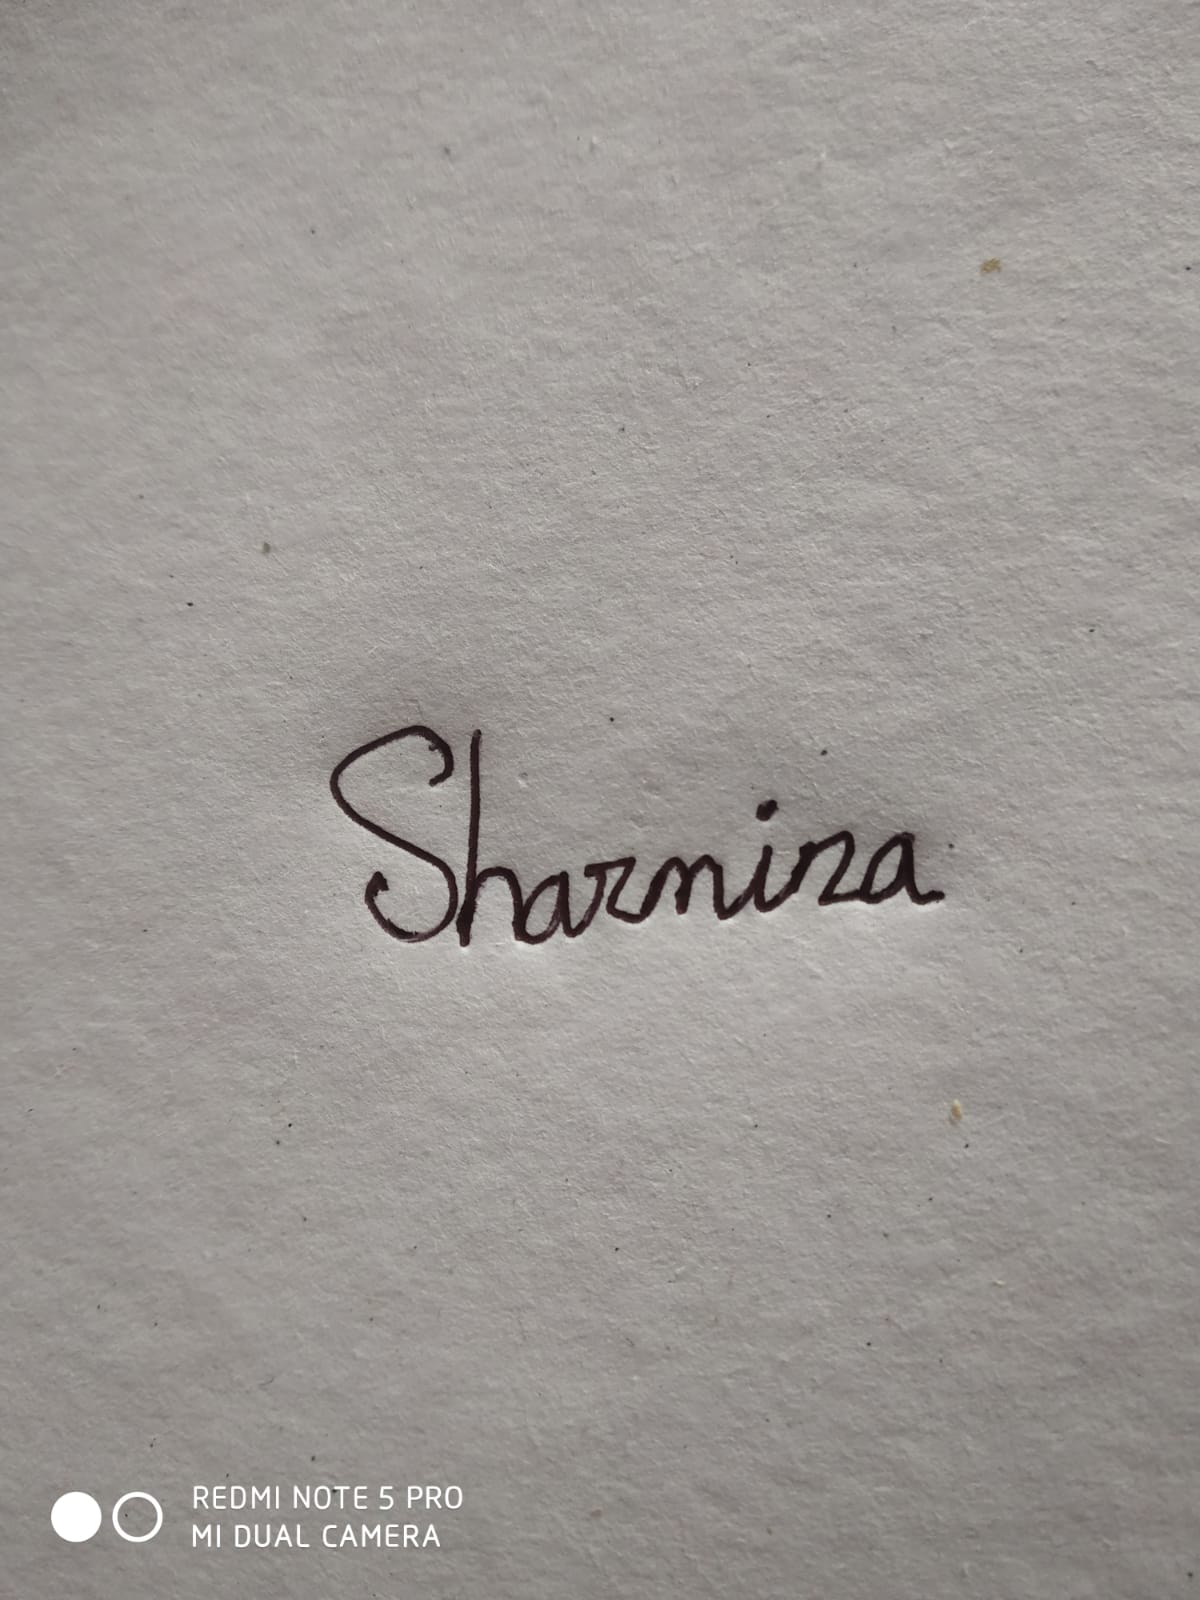 Sharmina
REDMI NOTE 5 PRO
MI DUAL CAMERA